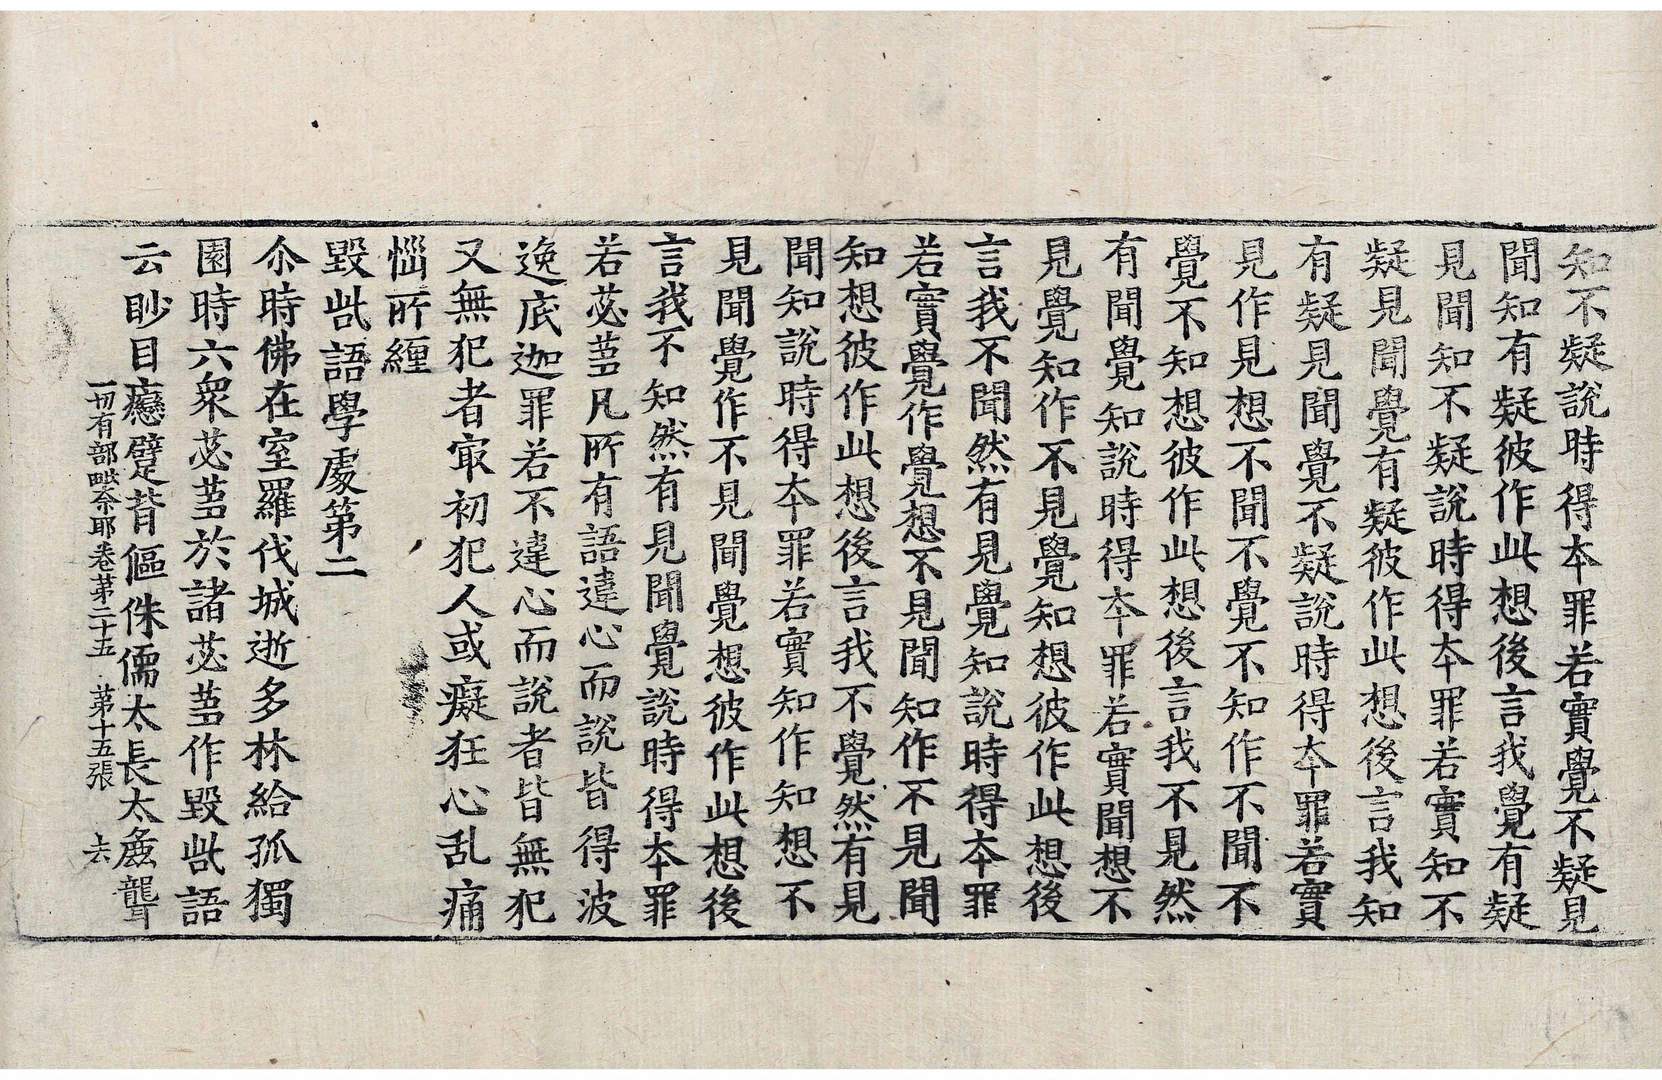 知不疑說時得夲罪若實覺不疑見
聞知有疑彼作此想後言我覺有疑
見聞知不疑說時得夲罪若實知不
疑見聞覺有疑彼作此想後言我知
有疑見聞覺不疑說時得夲罪若實
見作見想不聞不覺不知作不聞不
覺不知想彼作此想後言我不見然
有聞覺知說時得夲罪若實聞想不
見覺知作不見覺知想彼作此想後
言我不聞然有見覺知說時得夲罪
若實覺作覺想不見聞知作不見聞
知想彼作此想後言我不覺然有見
聞知說時得夲罪若實知作知想不
見聞覺作不見聞覺想彼作此想後
言我不知然有見聞覺說時得夲罪
若苾蒭凡所有語違心而說皆得波
逸底迦罪若不違心而說者皆無犯
又無犯者㝡初犯人或癡狂心乱痛
惱所纏
毀呰語學處第二
尒時佛在室羅伐城逝多林給孤獨
園時六衆苾蒭於諸苾蒭作毀呰語
云眇目癴躄背傴侏儒太長太麁聾
一切有部毗奈耶卷第二十五 第十五張 六